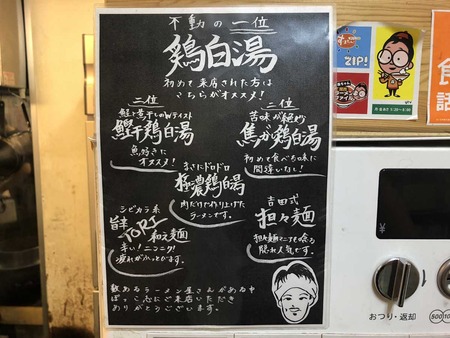 不動の一位
鶏白湯
初めて来店された方は
こちらがオススメ！
三位
鮭と煮干しのWテイスト
鰹干鶏白湯
魚好きに
オススメ！
二位
苦味が絶妙
焦がし鶏白湯
初めて食べる味に
間違いなし！
まさにドロドロ
極濃鶏白湯
肉だけで作り上げた
ラーメンです。
シビカラ系
旨辛TORI和え麺
辛い！ニンニク！
疲れがぶっとびます。
吉田式
担々麺
担々麺マニアも唸る
隠れ人気です。
数あるラーメン屋さんがある中
ぼっこ志にご来店いただき
ありがとうございます。
ZIP!
食
話
¥
おつり・返却
500